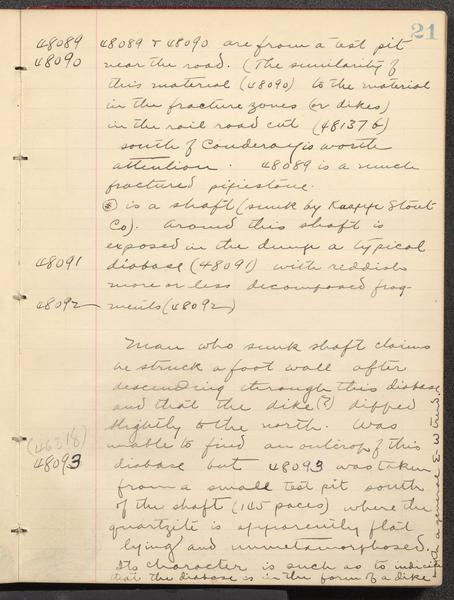 21
48089 48089 & 48090 are from a test pit
48090 near the road. (The similarity of
this material (48090) to the material
in the fracture zones (or dikes)
in the rail road cut (48137 b)
south of Couderay is worth
attention. 48089 is a much
fractured pipestone.
is a shaft (sunk by Stout
Co). Around this shaft is
exposed in the dump a typical
48091 diabase (48091) with reddish
more or less decomposed frag-
48092 ments (48092)
Man who sunk shaft claims
he struck a foot wall after
descending through this diabase
and that the dike (?) dipped
slightly to the north. Was
unable to find an outcrop of this
(46318)
48093 diabase but 48093 was taken
from a small test pit south
of the shaft (145 paces) where the
quartzite is apparently flat
lying and unmetamorphosed.
Its character is such as to indicate
that the diabase is in the form of a dike
a general E-W trend